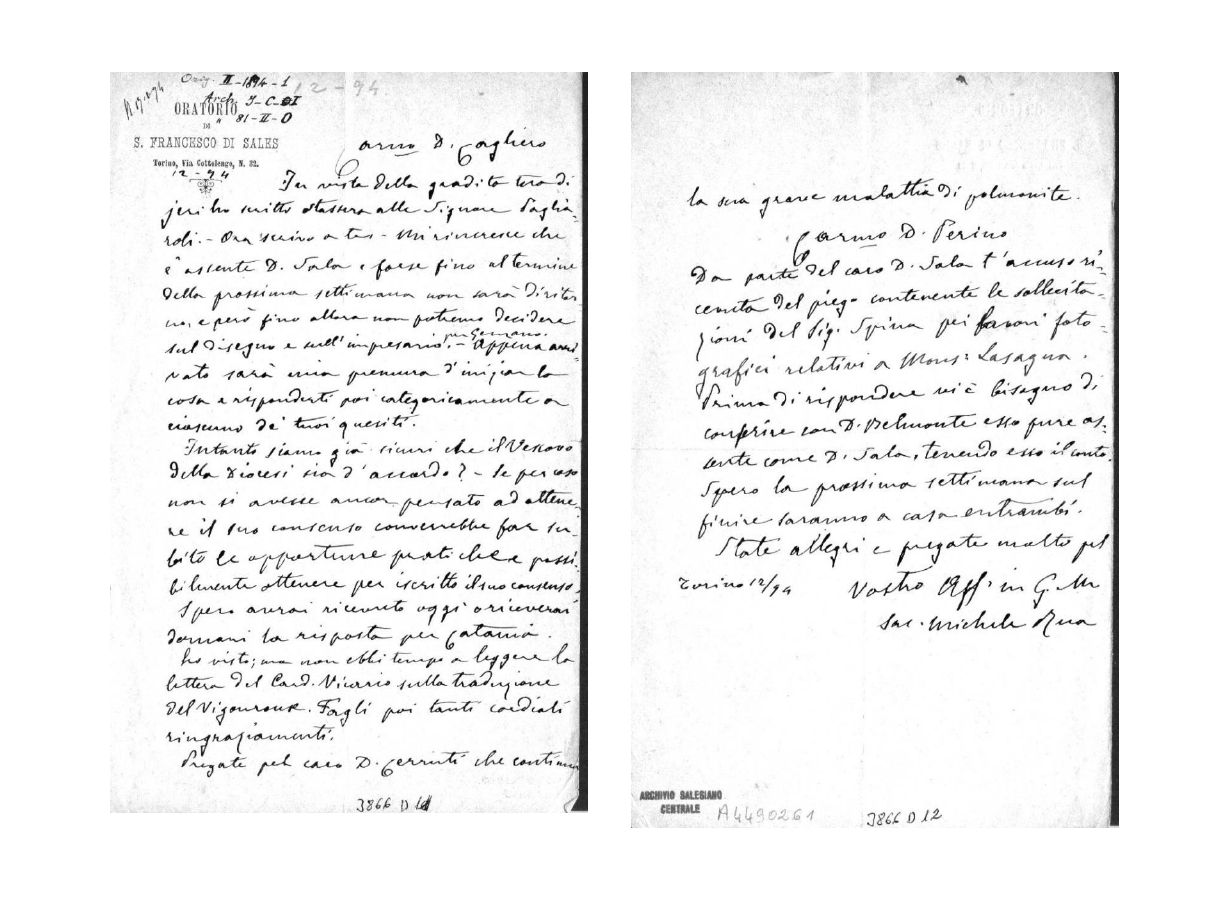 Orig. II-1894-1
12-94
Arch. I-C-I
ORATORIO
" 81-II-O
DI
S. FRANCESCO DI SALES
Torino, Via Cottolengo, N. 32.
12-94
Carmo D. Cagliero
In vista della gradita tua di
jeri ho scritto stassera alle Signore Paglia-
roli. - Ora scrivo a te. - Mi rincresce che
è assente D. Sala e forse fino al termine
della prossima settimana non sarà di ritor-
no, e però fino allora non potremo decidere
sul disegno e sull'impresario per Genzano. - Appena arri-
vato sarà mia premura d'iniziar la
cosa e risponderti poi categoricamente a
ciascuno de' tuoi quesiti.
Intanto siamo già sicuri che il Vescovo
della Diocesi sia d'accordo? - Se per caso
non si avesse ancor pensato ad ottene-
re il suo consenso converrebbe far su-
bito le opportune pratiche e possi-
bilmente ottenere per iscritto il suo consenso.
Spero avrai ricevuto oggi o riceverai
domani la risposta per Catania.
Ho visto; ma non ebbi tempo a leggere la
lettera del Card. Vicario sulla traduzione
del Vigouroux. Fagli poi tanti cordiali
ringraziamenti.
Pregate pel caro D. Cerruti che continua
3866 D 11
la sua grave malattia di polmonite.
Carmo D. Perino
Da parte del caro D. Sala t'accuso ri-
cevuta del piego contenente le sollecita-
zioni del Sig. Spina pei favori foto-
grafici relativi a Mons: Lasagna.
Prima di rispondere vi è bisogno di
conferire con D. Belmonte esso pure as-
sente come D. Sala, tenendo esso il conto.
Spero la prossima settimana sul
finire saranno a casa entrambi.
State allegri e pregate molto pel
Torino 12/94 Vostro Aff. in G. M.
Sac. Michele Rua
ARCHIVIO SALESIANO
CENTRALE
A4490261
3866 D 12